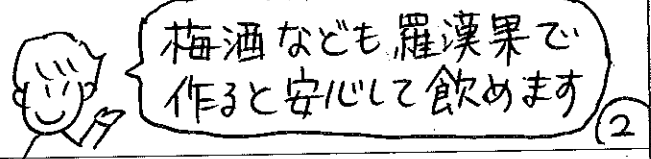 梅酒なども羅漢果で
作ると安心して飲めます
2